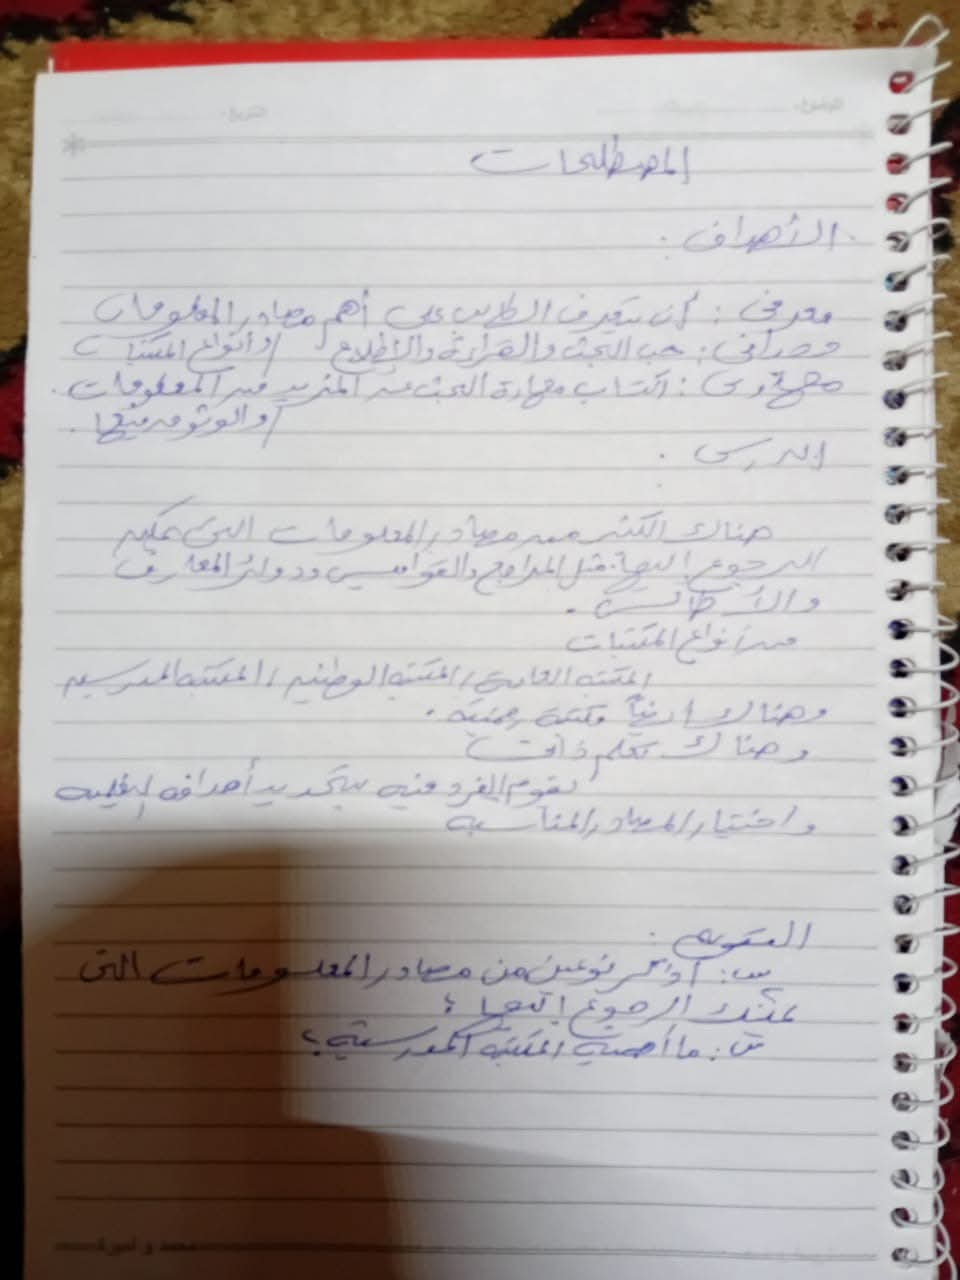 المصطلحات
الأهداف.
معرفى: أن يتعرف الطالب على أهم مصادر المعلومات
وجدانى: حب البحث والقراءة والإطلاع / وأنواع المكتبات
مهارى: اكتساب مهارة البحث عن المزيد من المعلومات.
/ والوثوق منها.
الدرس.
هناك الكثير من مصادر المعلومات التى يمكن
الرجوع إليها مثل المراجع والقواميس ودوائر المعارف
والأطالس.
من أنواع المكتبات
المكتبه العامة / المكتبه الوطنيه / المكتبه المدرسيه
وهناك ايضاً مكتبة رقمية.
وهناك تعلم ذاتى
يقوم الفرد فيه بتحديد أهدافه
واختيار المصادر المناسبه
التقويم.
س: أذكر نوعين من مصادر المعلومات التى
يمكنك الرجوع إليها؟
س: ما أهمية المكتبه المدرسية؟